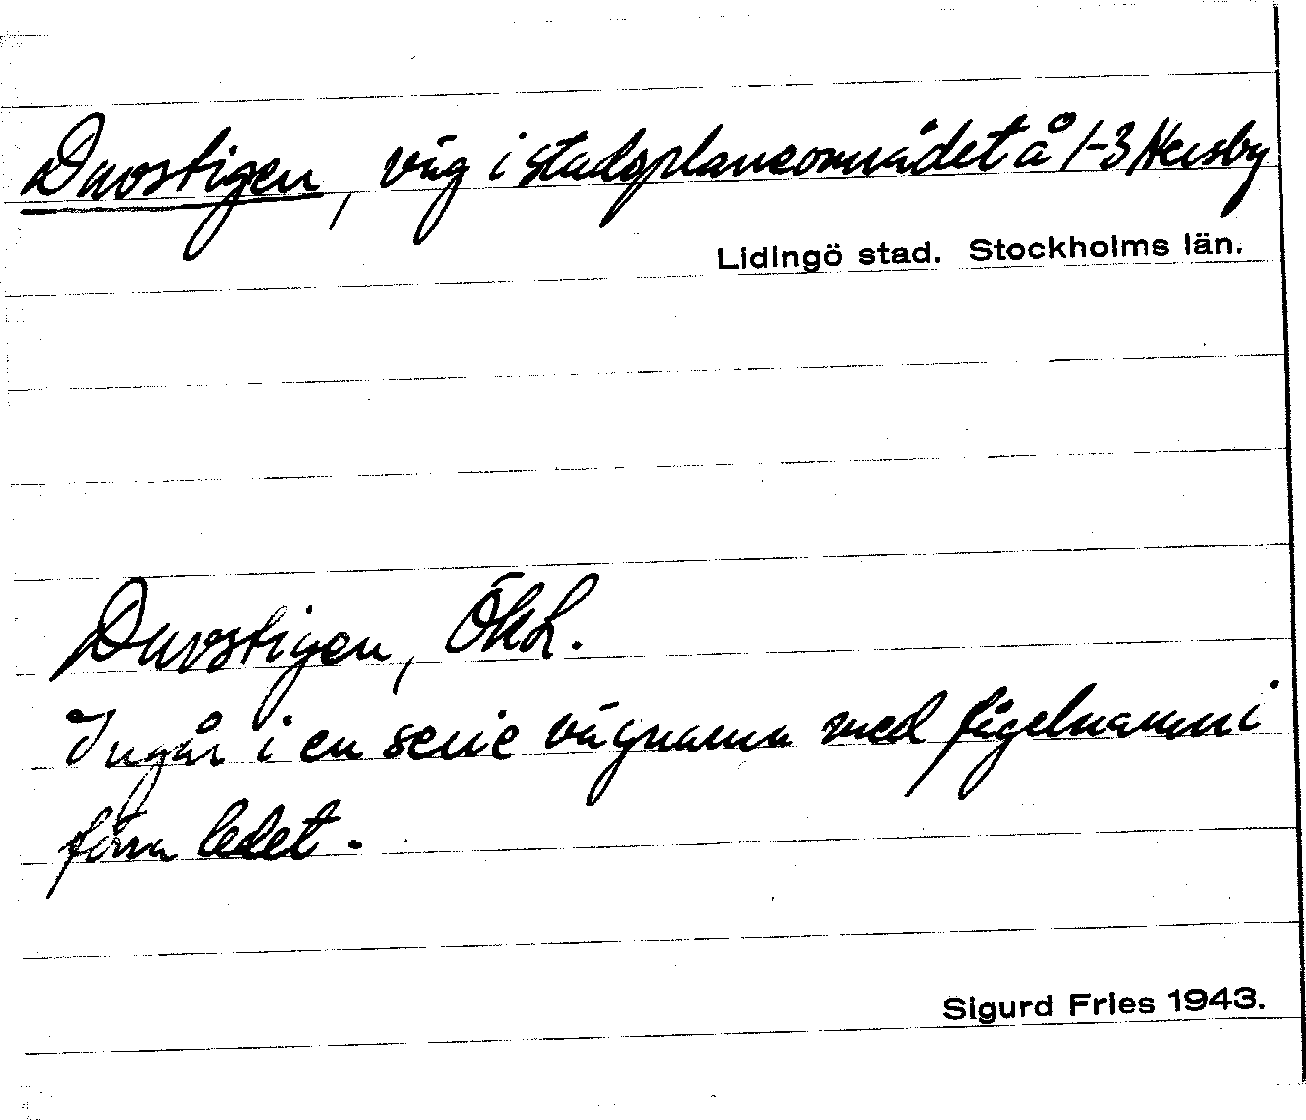 Duvstigen, väg i stadsplaneområdet å 1-3 Hersby
Lidingö stad. Stockholms län.
Duvstigen, ÖkL.
Ingår i en serie vägnamn med fågelnamn i
förra ledet.
Sigurd Fries 1943.